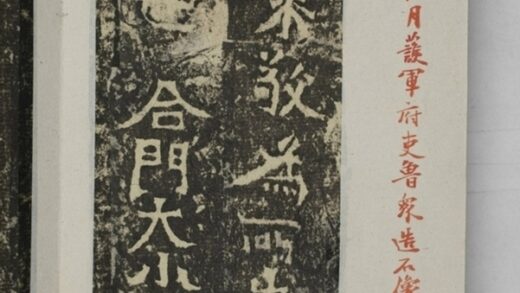 月護軍府吏魯衆造石像
敬為所
合門大小